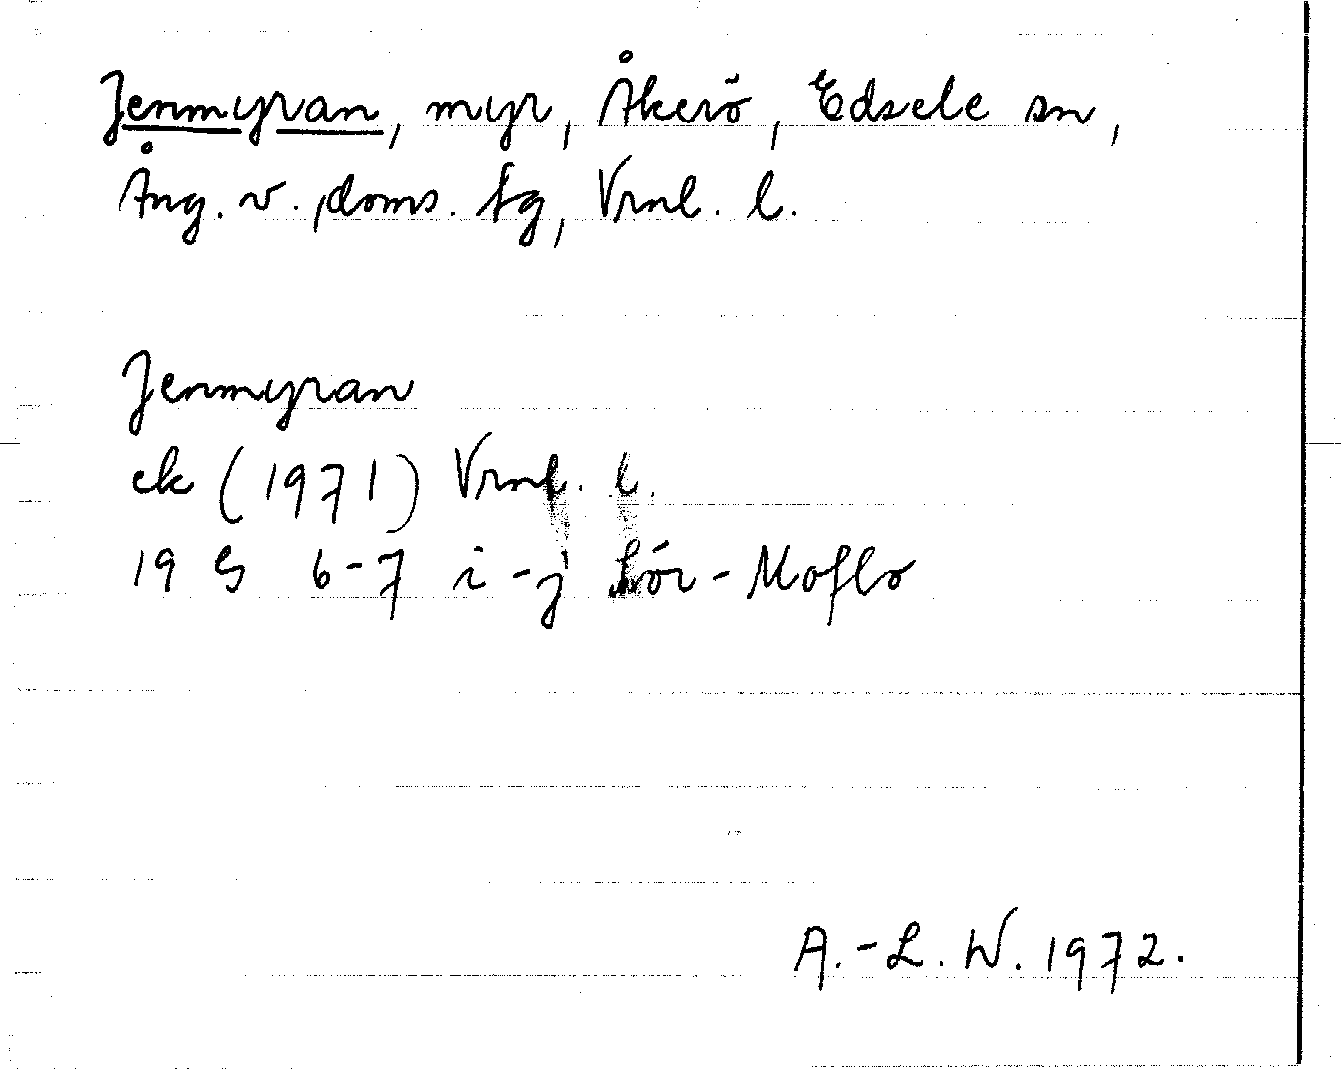 Jenmyran, myr, Åkerö, Edsele sn,
Ång. v. doms. tg, Vrnl. l.
Jenmyran
ek (1971) Vrnl. l.
19 G 6-7 i-j Lör-Moflo
A.-L. W. 1972.